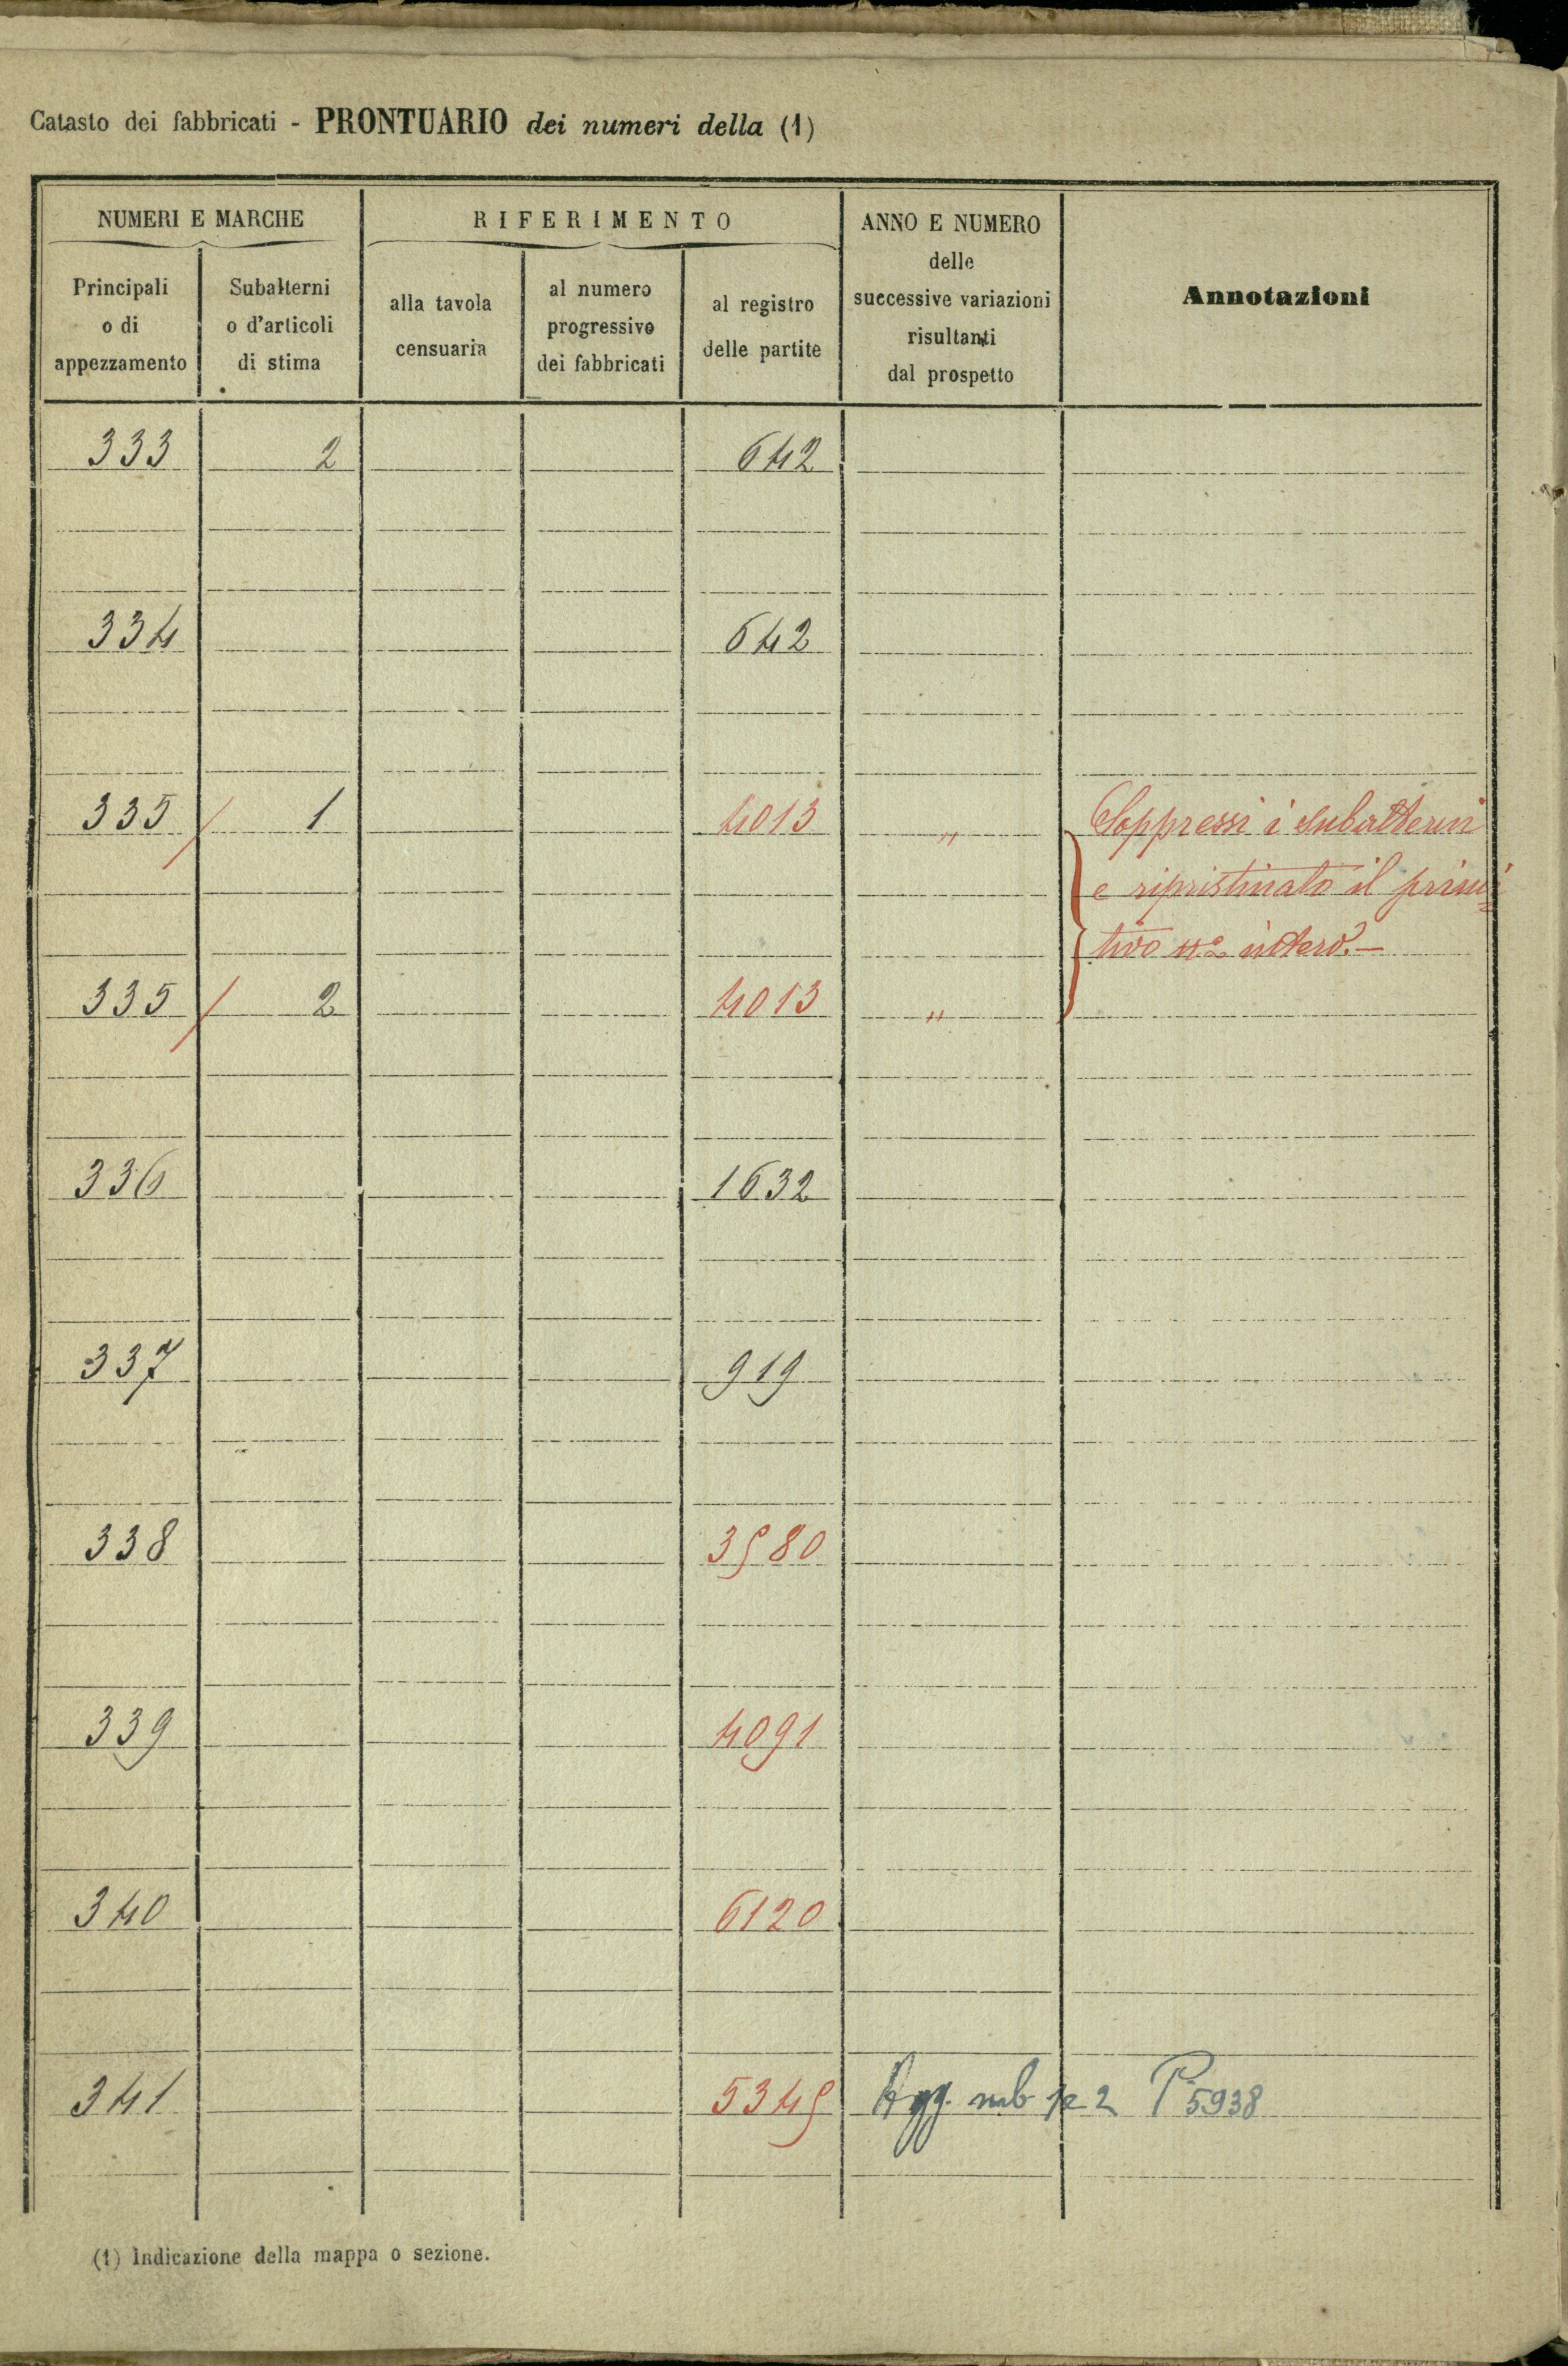 Catasto dei fabbricati - PRONTUARIO dei numeri della (1)
NUMERI E MARCHE
RIFERIMENTO
ANNO E NUMERO
delle
successive variazioni
risultanti
dal prospetto
Annotazioni
Principali
o di
appezzamento
Subalterni
o d'articoli
di stima
alla tavola
censuaria
al numero
progressivo
dei fabbricati
al registro
delle partite
333 2 642
334 642
335 / 1 4013 " Soppressi i subalterni
e ripristinato il primi
tivo nº intero.-
335 / 2 4013 "
336 1632
337 919
338 3580
339 4091
340 6120
341 5345 Agg. sub 2 P 5938
(1) Indicazione della mappa o sezione.